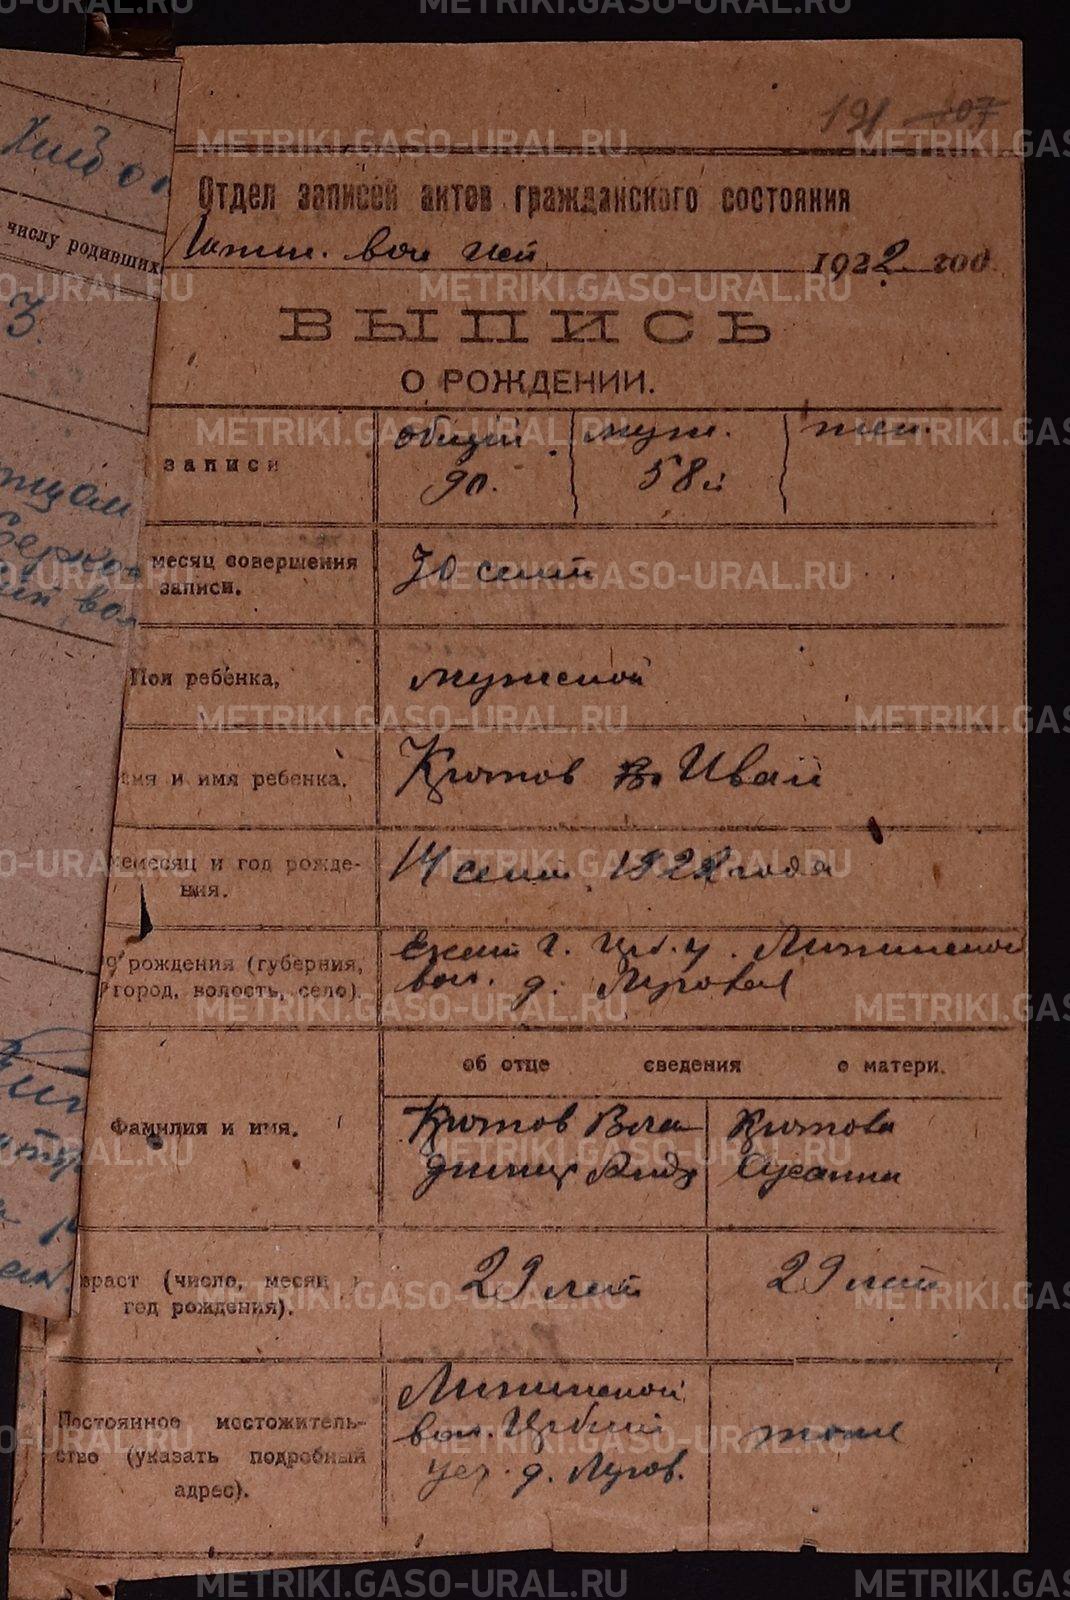 191 107
Отдел записей актов гражданского состояния
вол исп 1922 год
ВЫПИСЬ
О РОЖДЕНИИ.
записи
общий муж. жен.
90. 58й
месяц совершения
записи.
30 сент
Пол ребенка,
мужской
имя ребенка.
Кротов Иван
месяц и год рожде-
ния.
14 сент. 1922 года
рождения (губерния,
город, волость, село).
Екат г. Ирб. у.
вол. д. Луговая
об отце сведения о матери.
Фамилия и имя.
Кротов Вла
димир Анд
Кротова
Сусанна
раст (число, месяц
год рождения).
29 лет 29 лет
Постоянное местожитель-
ство (указать подробный
адрес).
вол. Ирбит
уез. д. Лугов.
тоже
числу родивших
3.
вол
METRIKI.GASO-URAL.RU